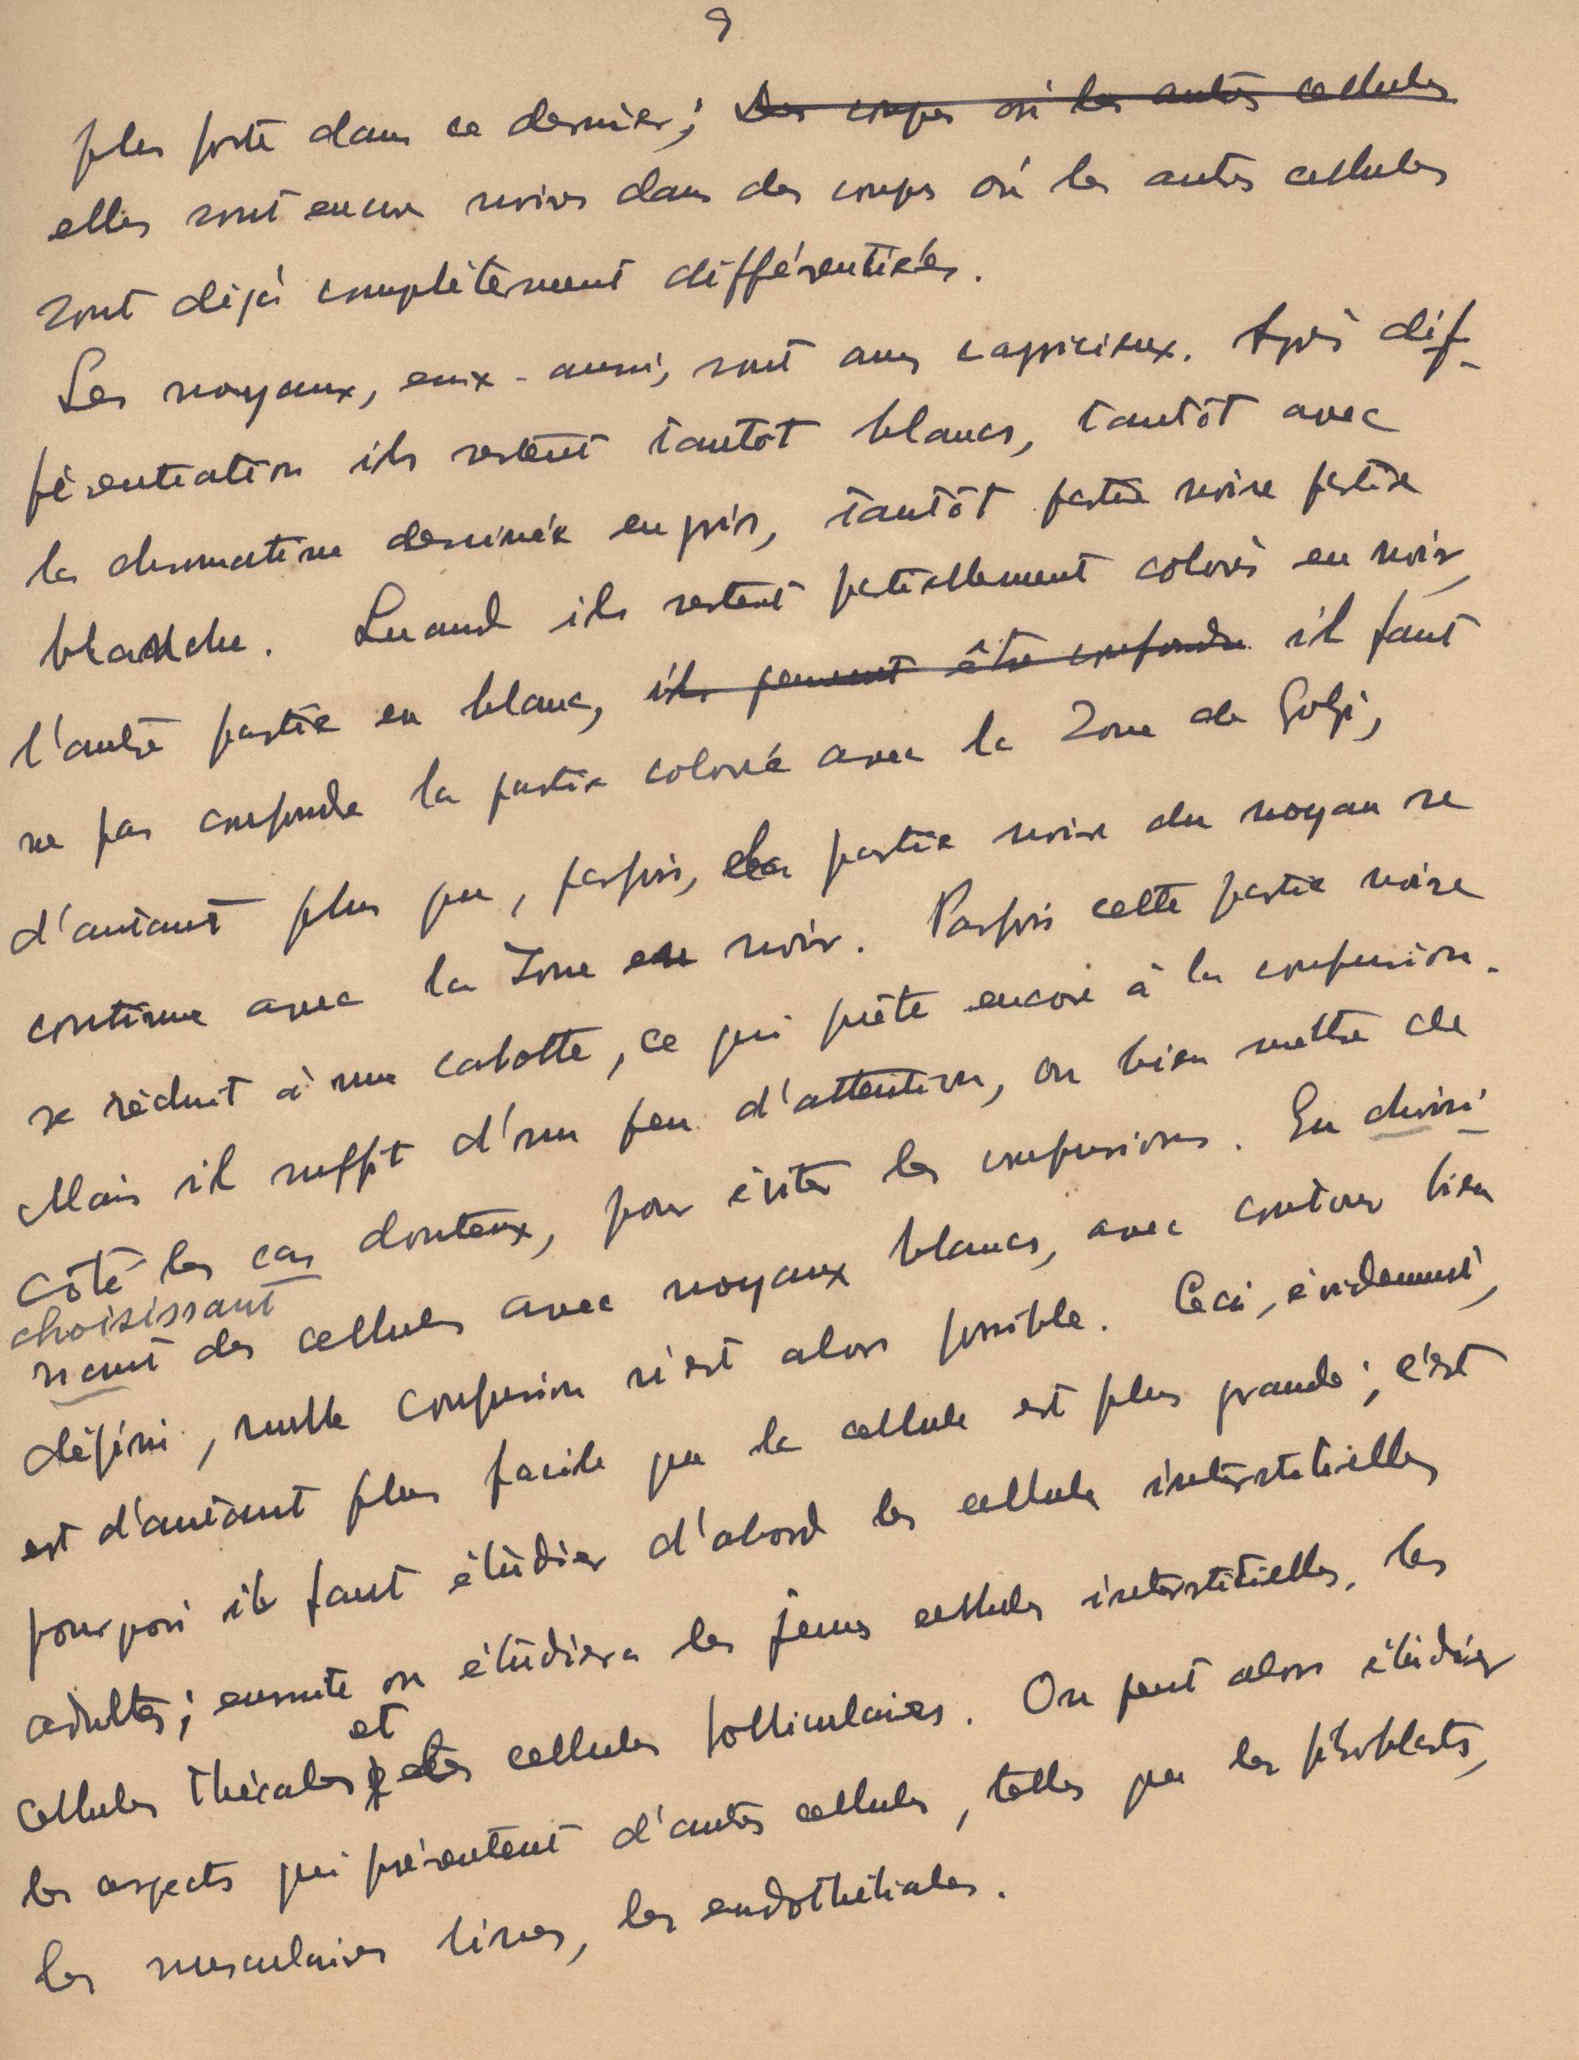 9
plus forte dans ce dernier; des coupes où les autres cellules
elles sont encore noires dans des coupes où les autres cellules
sont déjà complètement différentiées.
Les noyaux, eux-aussi, sont assez capricieux. Après dif-
férentiation ils restent tantôt blancs, tantôt avec
la chromatine dessinée en gris, tantôt partie noire partie
blanche. Quand ils restent partiellement colorés en noir,
l'autre partie en blanc, ils peuvent être confondu il faut
ne pas confondre la partie colorée avec la zone de Golgi,
d'autant plus que, parfois, la partie noire du noyau se
continue avec la zone en noir. Parfois cette partie noire
se réduit à une calotte, ce qui prête encore à la confusion.
Mais il suffit d'un peu d'attention, ou bien mettre de
côté les cas douteux, pour éviter les confusions. En choisi
choisissant
ssant des cellules avec noyaux blancs, avec contour bien
défini, nulle confusion n'est alors possible. Ceci, évidemment,
est d'autant plus facile que la cellule est plus grande; c'est
pourquoi il faut étudier d'abord les cellules interstitielles
adultes; ensuite on étudiera les jeunes cellules interstitielles, les
et
cellules thécales, les cellules folliculaires. On peut alors étudier
les aspects qui présentent d'autres cellules, telles que les fibroblasts,
les musculaires lisses, les endothéliales.